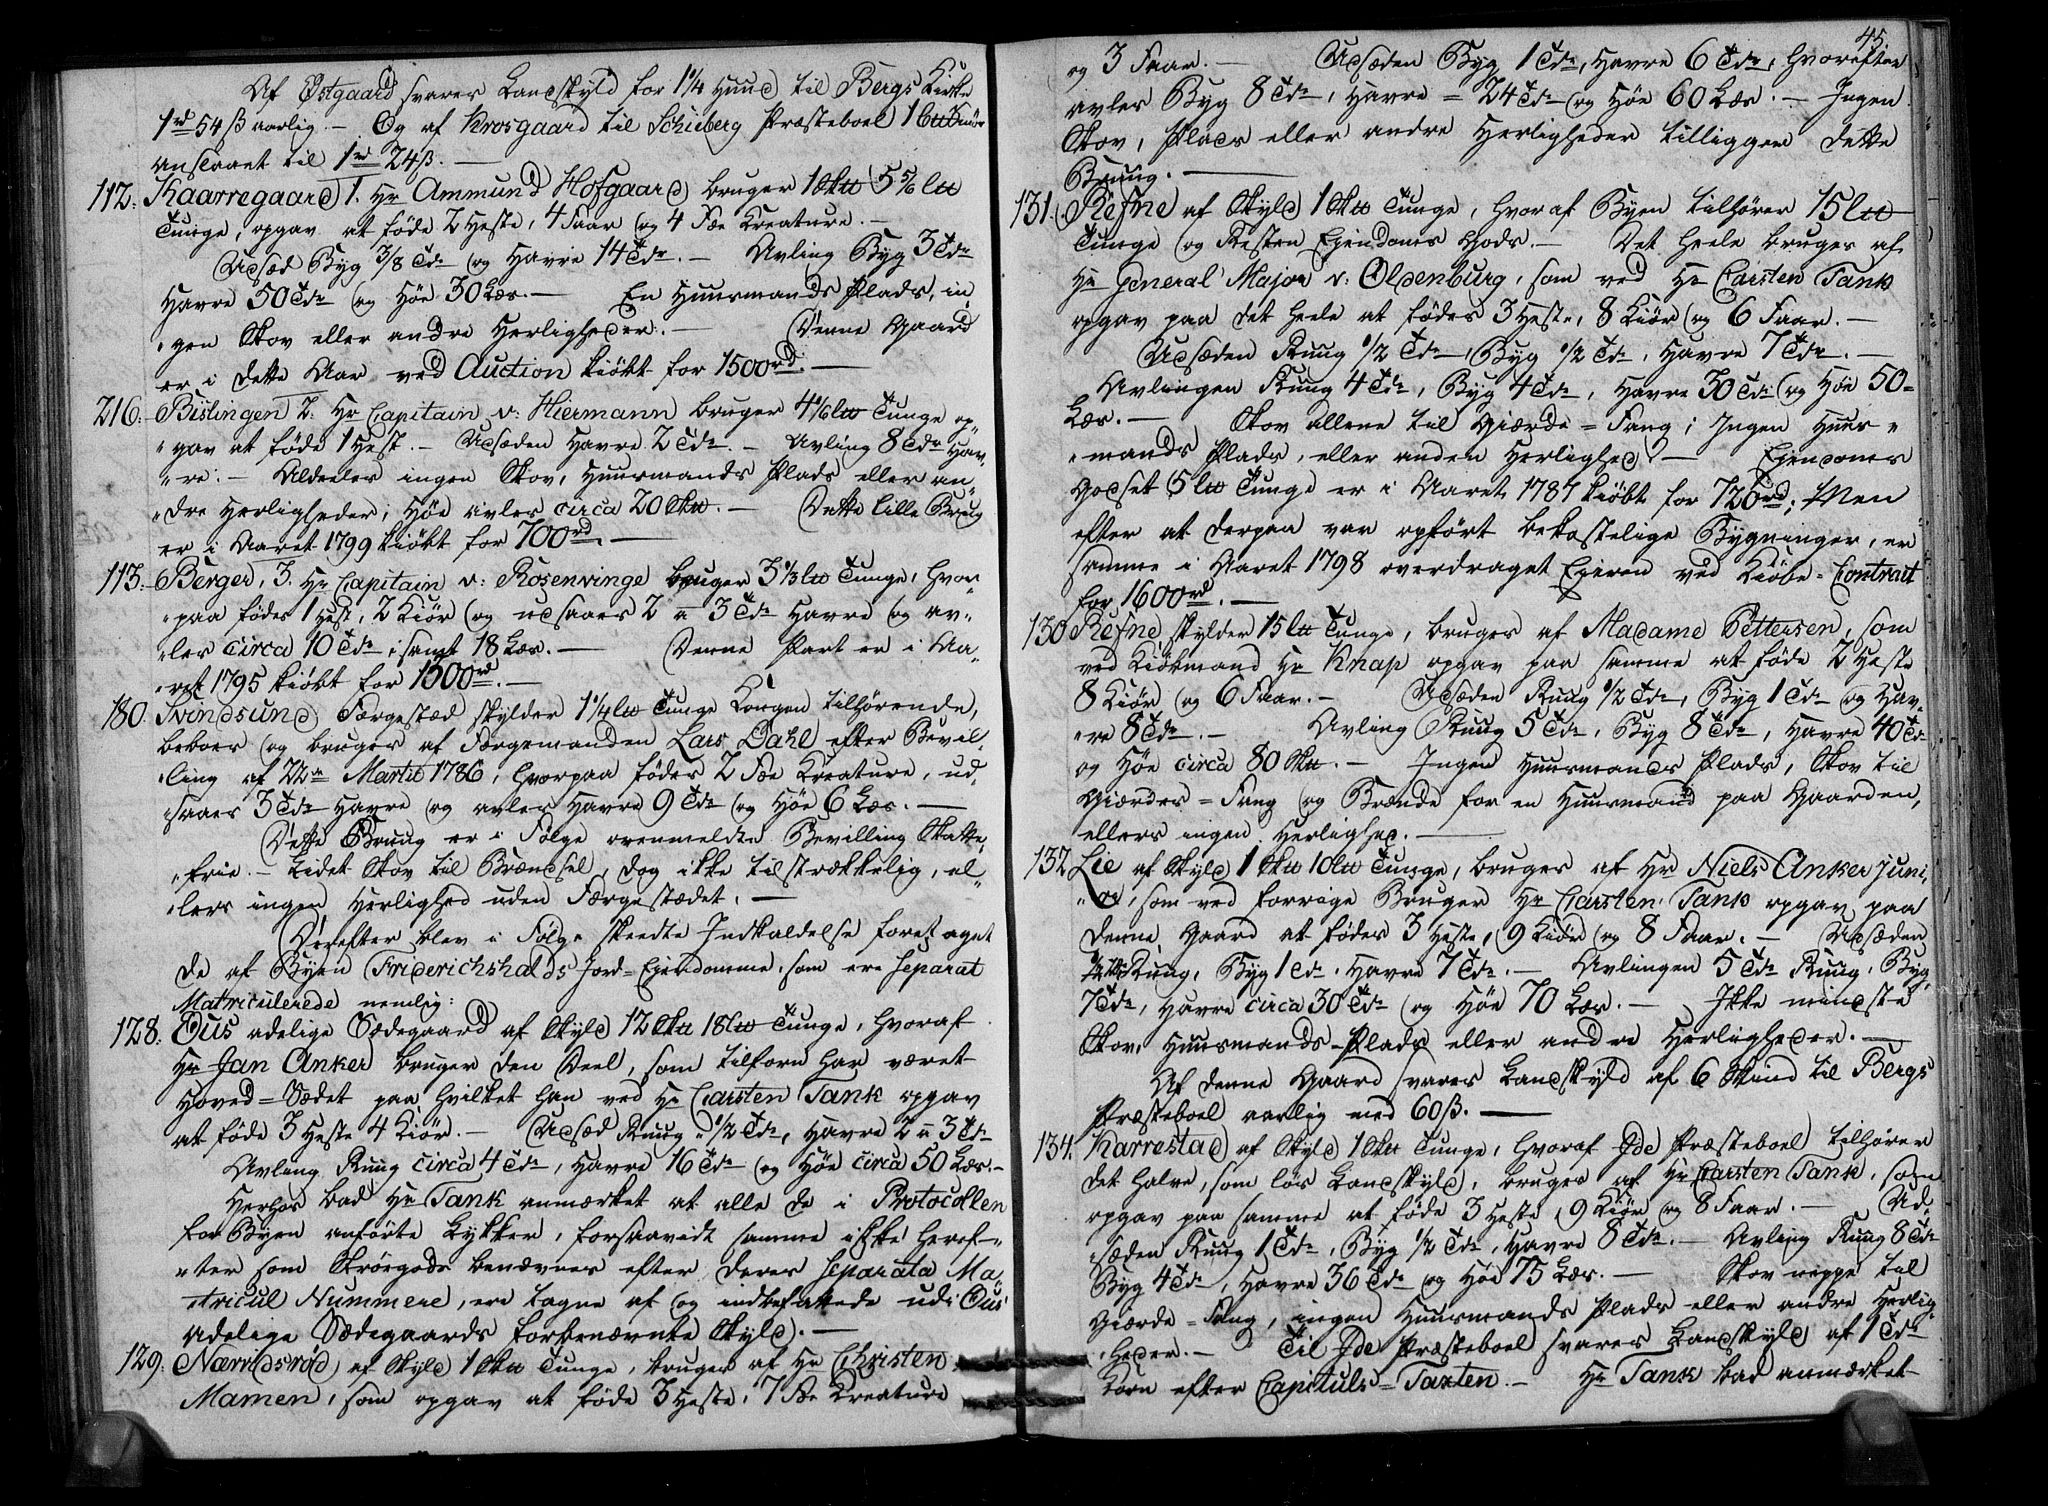 Af Østgaard svares Landskyld for 1 1/4 Huud til Bergs Kirke
1rd 54 ß aarlig. — Og af Krosgaard til Schieberg Præsteboel 1 Smør
anslaaet til 1rd 24ß. —
112. Kaarregaard 1. Hr Ammund Hofgaard bruger 1 Sktt 5 5/6 ltt
Tunge, opgav at føde 2 Heste, 4 Faar og 4 Fæ Kreature. —
Udsæd Byg 3/8 Tdr og Havre 14 Tdr. — Avling Byg 3 Tdr
Havre 50 Tdr og Høe 30 Læs. — En Huusmands Plads, in„
„gen Skov eller andre Herligheder. — Denne Gaard
er i dette Aar ved Auction kiøbt for 1500rd. —
216. Bislingen 2. Hr Capitain v: Hiermann bruger 4 1/6 ltt Tunge op„
„gav at føde 1 Hest. — Udsæden Havre 2 Tdr. — Avling 8 Tdr Hav„
„re. — Aldeeles ingen Skov, Huusmands Plads eller an„
„dre Herligheder, Høe avles circa 20 Sktt. — Dette lille Brug
er i Aaret 1799 kiøbt for 700rd. —
113. Berger, 3. Hr Capitain v: Rosenvinge bruger 3 1/3 ltt Tunge, hvor„
„paa fødes 1 Hest, 2 Kiør og udsaaes 2 a 3 Tdr Havre og av„
„les circa 10 Tdr, samt 18 Læs. — Denne Part er i Aa„
„ret 1795 kiøbt for 1500rd. —
180. Svindsund Færgestæd skylder 1 1/4 ltt Tunge Kongen tilhørende,
beboes og bruges af Færgemanden Lars Dahl efter Bevil„
„ling af 22de Martii 1786, hvorpaa fødes 2 Fæ Kreature, ud„
„saaes 3 Tdr Havre og avles Havre 9 Tdr og Høe 6 Læs. —
Dette Bruug er i Følge ovenmeldte Bevilling Skatte„
„frie. — Lidet Skov til Brændsel, dog ikke tilstrækkelig, el„
„lers ingen Herlighed uden Færgestædet. —
Derefter blev i Følge skeedte Indkaldelse foretaget
de af Byen Friderichshalds Jord-Eiendomme, som ere separat
Matriculerede nemlig:
128. Ous adelige Sædegaard af Skyld 12 Sktt 18 ltt Tunge, hvoraf
Hr Jan Anker bruger den Deel, som tilforn har været
Hoved-Sædet paa hvilket han ved Hr Carsten Tank opgav
at føde 3 Heste 4 Kiør. — Udsæd Ruug 1/2 Tdr, Havre 2 a 3 Tdr
Avling Ruug circa 4 Tdr, Havre 16 Tdr og Høe circa 50 Læs. —
Herhos bad Hr Tank anmærket at alle de i Protocollen
for Byen anførte Lykker, forsaavidt samme ikke heref„
„ter som Strøegods benævnes efter deres separata Ma„
„tricul Nummere, ere tagne af og indbefattede udi Ous
Adelige Sædegaards forbenævnte Skyld. —
129. Nærridsrød af Skyld 1 Sktt Tunge, bruges af Hr Christen
Mamen, som opgav at føde 3 Heste, 7 Fæ Kreature
45.
og 3 Faar. — Udsæden Byg 1 Tdr, Havre 6 Tdr, hvorefter
avles Byg 8 Tdr, Havre 24 Tdr og Høe 60 Læs. — Ingen
Skov, Plads eller andre Herligheder tilligger dette
Bruug. —
131. Refne af Skyld 1 Sktt Tunge, hvoraf Byen tilhører 15 ltt
Tunge og Resten Eiendoms Gods. — Det heele bruges af
Hr General Major v: Oldenburg, som ved Hr Carsten Tank
opgav paa det heele at fødes 3 Heste, 8 Kiør og 6 Faar. —
Udsæden Ruug 1/2 Tdr, Byg 1/2 Td, Havre 7 Tdr. —
Avlingen Ruug 4 Tdr, Byg 4 Tdr, Havre 30 Tdr og Høe 50
Læs. — Skov allene til Giærde-Fang; Ingen Huus„
„mands Plads, eller anden Herlighed. — Eiendoms
Godset 5 ltt Tunge er i Aaret 1787 kiøbt for 720rd; Men
efter at derpaa var opført bekostelige Bygninger, er
samme i Aaret 1798 overdraget Eieren ved Kiøbe-Contract
for 1600rd. —
130. Refne skylder 15 ltt Tunge, bruges af Madame Pettersen, som
ved Kiøbmand Hr Knap opgav paa samme at føde 2 Heste
8 Kiør og 6 Faar. — Udsæden Ruug 1/2 Tdr, Byg 1 Tdr og Hav„
„re 8 Tdr. — Avling Ruug 5 Tdr, Byg 8 Tdr, Havre 40 Tdr
og Høe circa 80 Sktt. — Ingen Huusmands Plads, Skov til
Giærdes-Fang og Brænde for en Huusmand paa Gaarden,
ellers ingen Herlighed. —
132. Lie af Skyld 1 Sktt 10 ltt Tunge, bruges af Hr Niels Anker juni„
„or, som ved forrige Bruger Hr Carsten Tank opgav paa
denne Gaard at fødes 3 Heste, 9 Kiør og 8 Faar. — Udsæden
1/2 Tdr Ruug, Byg 1 Td, Havre 7 Tdr. — Avlingen 5 Tdr Ruug, Byg
7 Tdr, Havre circa 30 Tdr og Høe 70 Læs. — Ikke mindste
Skov, Huusmands-Plads eller andre Herligheder. —
Af denne Gaard svares Landskyld af 6 Skind til Bergs
Præsteboel aarlig med 60ß. —
134. Karrestad af Skyld 1 Sktt Tunge, hvoraf Ide Præsteboel tilhører
det halve, som løs Landskyld, bruges af Hr Carsten Tank, som
opgav paa samme at føde 3 Heste, 9 Kiør og 8 Faar. — Ud„
„sæden Ruug 1 Tdr, Byg 1/2 Tdr, Havre 8 Tdr. — Avling Ruug 8 Tdr
Byg 4 Tdr, Havre 36 Tdr og Høe 75 Læs. — Skov neppe til
Giærde-Fang, ingen Huusmands Plads eller andre Herlig„
„heder. — Til Ide Præsteboel svares Landskyld af 1 Tdr
Korn efter Capituls-Taxten. — Hr Tank bad anmærket